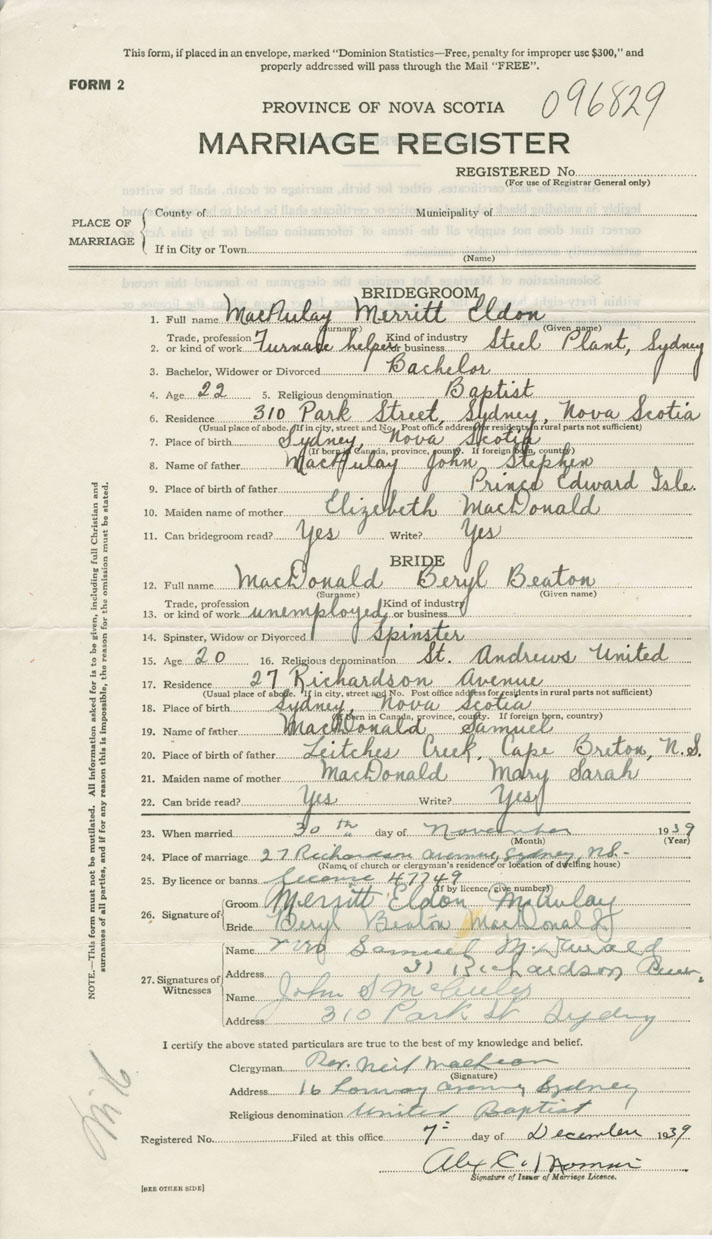 This form, if placed in an envelope, marked "Dominion Statistics—Free, penalty for improper use $300," and
properly addressed will pass through the Mail "FREE".
FORM 2
096829
PROVINCE OF NOVA SCOTIA
MARRIAGE REGISTER
REGISTERED No.
(For use of Registrar General only)
PLACE OF MARRIAGE
County of Municipality of
If in City or Town
(Name)
BRIDEGROOM
1. Full name MacAulay Merritt Eldon
(Surname) (Given name)
2. Trade, profession or kind of work Furnace helper Kind of industry or business Steel Plant, Sydney
3. Bachelor, Widower or Divorced Bachelor
4. Age 22 5. Religious denomination Baptist
6. Residence 310 Park Street, Sydney, Nova Scotia
(Usual place of abode. If in city, street and No. Post office address for residents in rural parts not sufficient)
7. Place of birth Sydney, Nova Scotia
(If born in Canada, province, county. If foreign born, country)
8. Name of father MacAulay John Stephen
9. Place of birth of father Prince Edward Isle.
10. Maiden name of mother Elizebeth MacDonald
11. Can bridegroom read? Yes Write? Yes
BRIDE
12. Full name MacDonald Beryl Beaton
(Surname) (Given name)
13. Trade, profession or kind of work unemployed Kind of industry or business
14. Spinster, Widow or Divorced Spinster
15. Age 20 16. Religious denomination St. Andrews United
17. Residence 27 Richardson Avenue
(Usual place of abode. If in city, street and No. Post office address for residents in rural parts not sufficient)
18. Place of birth Sydney, Nova Scotia
(If born in Canada, province, county. If foreign born, country)
19. Name of father MacDonald Samuel
20. Place of birth of father Leitches Creek, Cape Breton, N.S.
21. Maiden name of mother MacDonald Mary Sarah
22. Can bride read? Yes Write? Yes
23. When married 30th day of November 1939
(Month) (Year)
24. Place of marriage 27 Richardson avenue, Sydney, N.S.
(Name of church or clergyman's residence or location of dwelling house)
25. By licence or banns license 47749
(If by licence, give number)
26. Signature of Groom Merritt Eldon McAulay
Bride Beryl Beaton MacDonald
27. Signatures of Witnesses
Name Samuel
Address Richardson
Name John S McAuley
Address 310 Park St Sydney
I certify the above stated particulars are true to the best of my knowledge and belief.
Clergyman Rev. Neil MacLean
(Signature)
Address 16 avenue, Sydney
Religious denomination United Baptist
Registered No. Filed at this office 7 day of December 1939
Alex C.
Signature of Issuer of Marriage Licence.
[SEE OTHER SIDE]
NOTE.—This form must not be mutilated. All information asked for is to be given, including full Christian and
surnames of all parties, and if for any reason this is impossible, the reason for the omission must be stated.